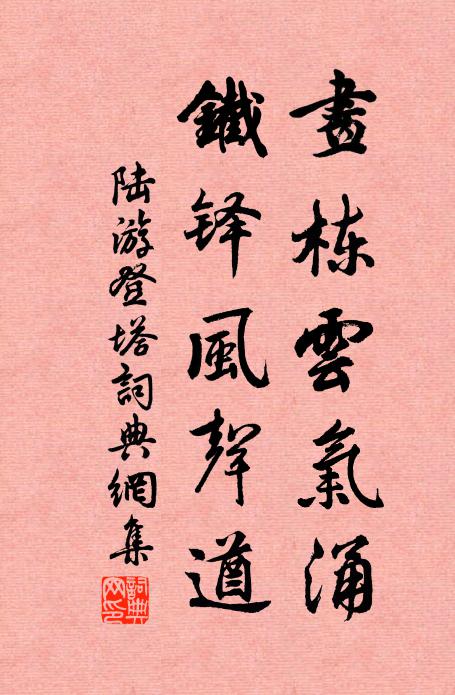 畫栋雲氣涌
鐵铎風聲遒
陆游登塔詞典網集
詞典网印